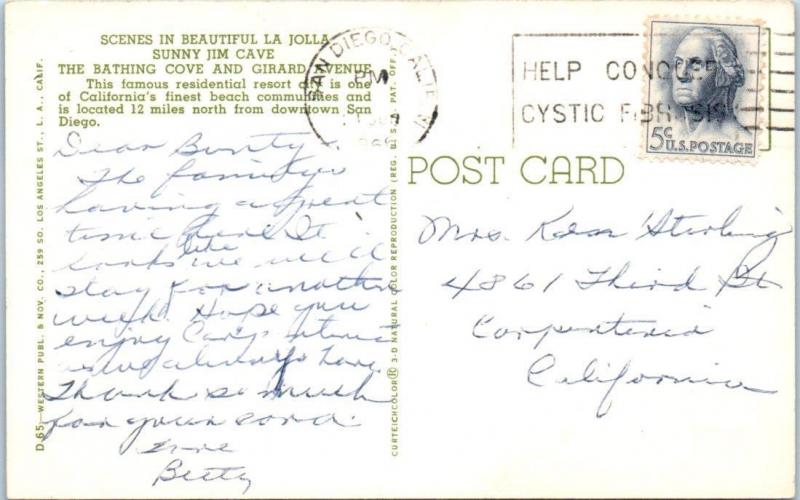 SCENES IN BEAUTIFUL LA JOLLA
SUNNY JIM CAVE
THE BATHING COVE AND GIRARD AVENUE
This famous residential resort city is one
of California's finest beach communities and
is located 12 miles north from downtown San
Diego.
Dear Bunty
The family is
having a great
time here. It
looks like we will
stay for another
week. Hope you
enjoy Carp
always have.
Thank so much
for your card.
Love
Betty
D-65—WESTERN PUBL. & NOV. CO., 259 SO. LOS ANGELES ST., L. A., CALIF.
CURTEICHCOLOR® 3-D NATURAL COLOR REPRODUCTION (REG. U. S. PAT. OFF.)
SAN DIEGO, CALIF.
PM
HELP CONQUER
CYSTIC FIBROSIS
5c
U.S. POSTAGE
POST CARD
Mrs. Ken Sterling
4861 Third St
Carpenteria
California